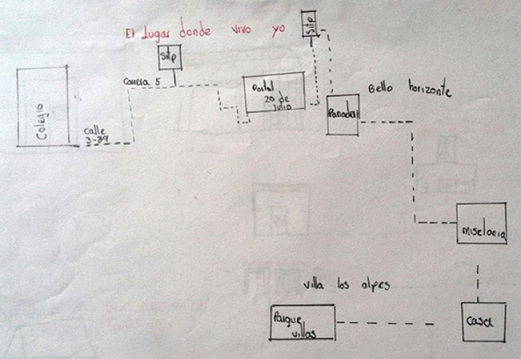 El Lugar donde vivo yo
Sitp
Sitp
Colegio
Carrera 5
Calle
3-39
Portal
20 de
Julio
Bello horizonte
Miselania
villa los alpes
Parque
villas
casa